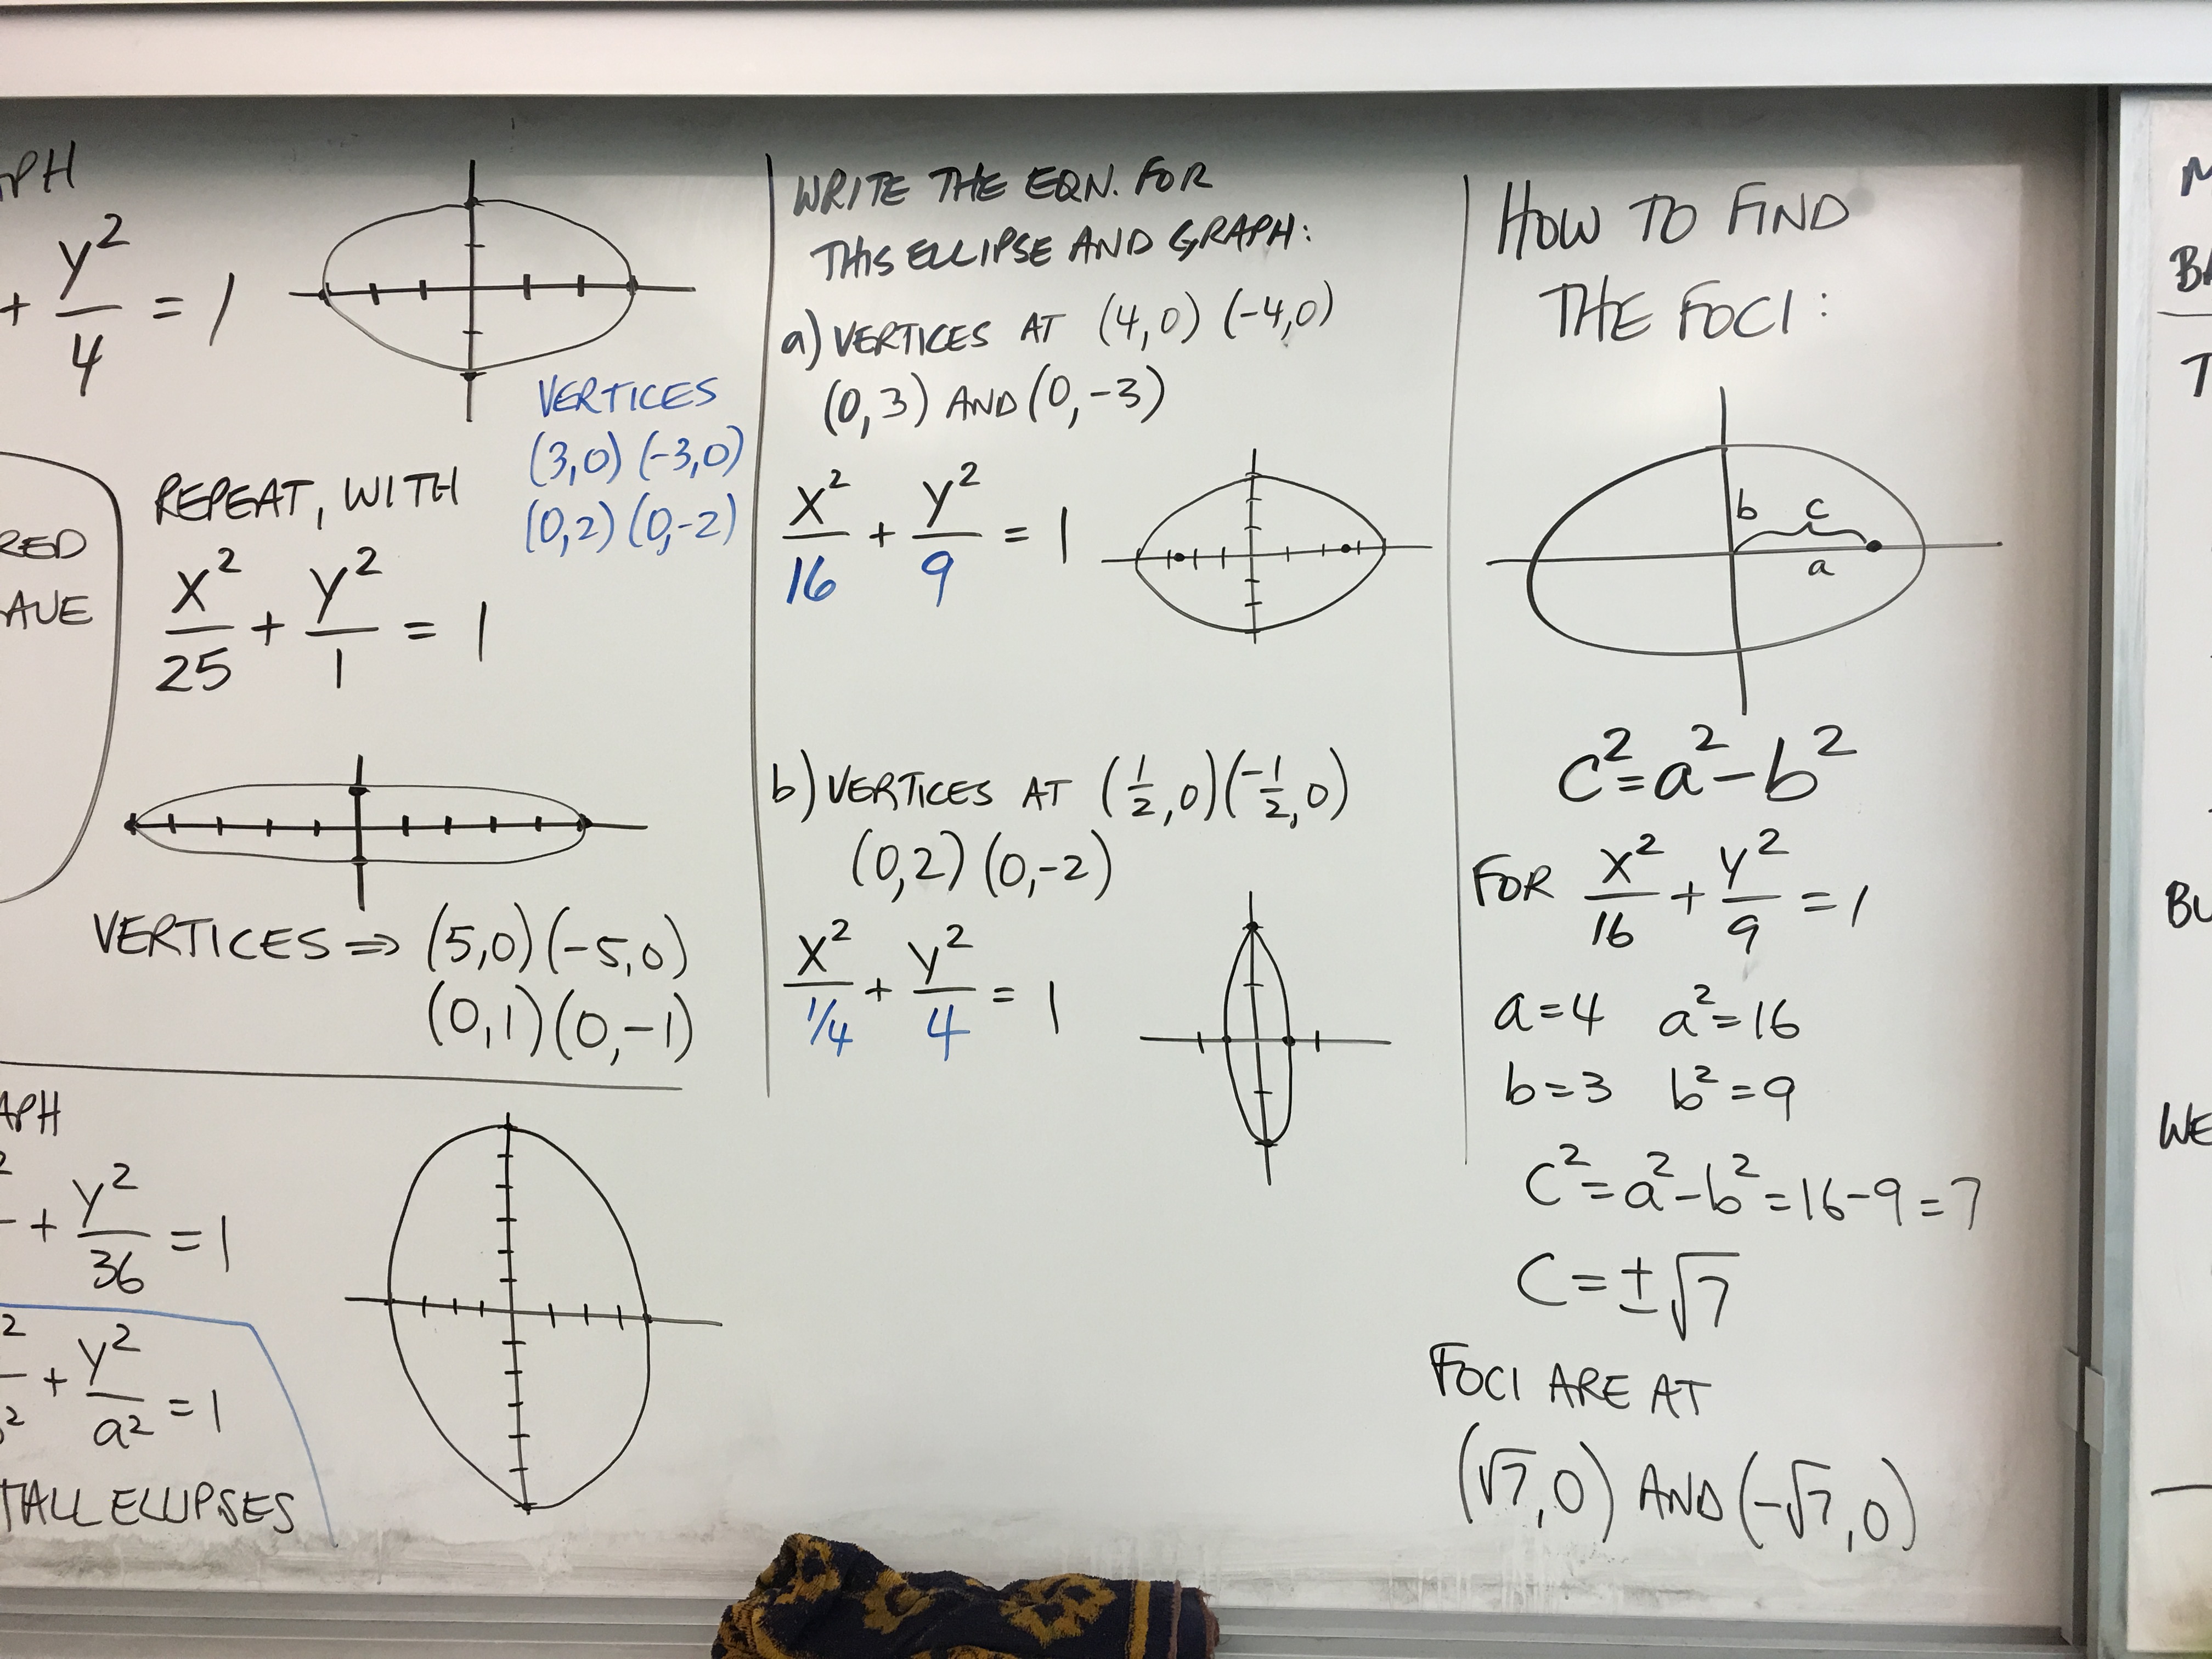 y²/4 = 1
VERTICES
(3,0) (-3,0)
(0,2) (0,-2)
REPEAT, WITH
x²/25 + y²/1 = 1
VERTICES ⇒ (5,0) (-5,0)
(0,1) (0,-1)
+ y²/36 = 1
+ y²/a² = 1
TALL ELLIPSES
WRITE THE EQN. FOR
THIS ELLIPSE AND GRAPH:
a) VERTICES AT (4,0) (-4,0)
(0,3) AND (0,-3)
x²/16 + y²/9 = 1
b) VERTICES AT (1/2,0) (-1/2,0)
(0,2) (0,-2)
x²/1/4 + y²/4 = 1
HOW TO FIND
THE FOCI:
b c
a
c² = a² - b²
FOR x²/16 + y²/9 = 1
a = 4 a² = 16
b = 3 b² = 9
c² = a² - b² = 16 - 9 = 7
c = ± √7
FOCI ARE AT
(√7,0) AND (-√7,0)
WE